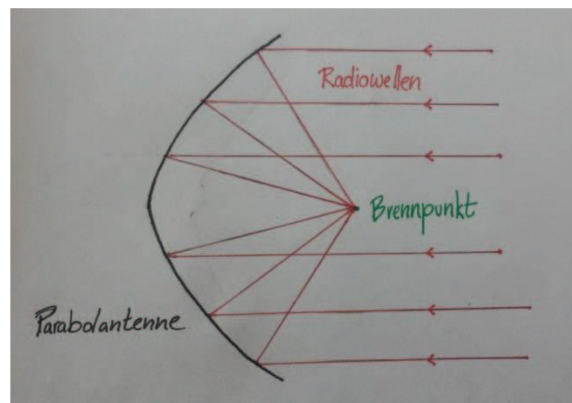 Radiowellen
Brennpunkt
Parabolantenne